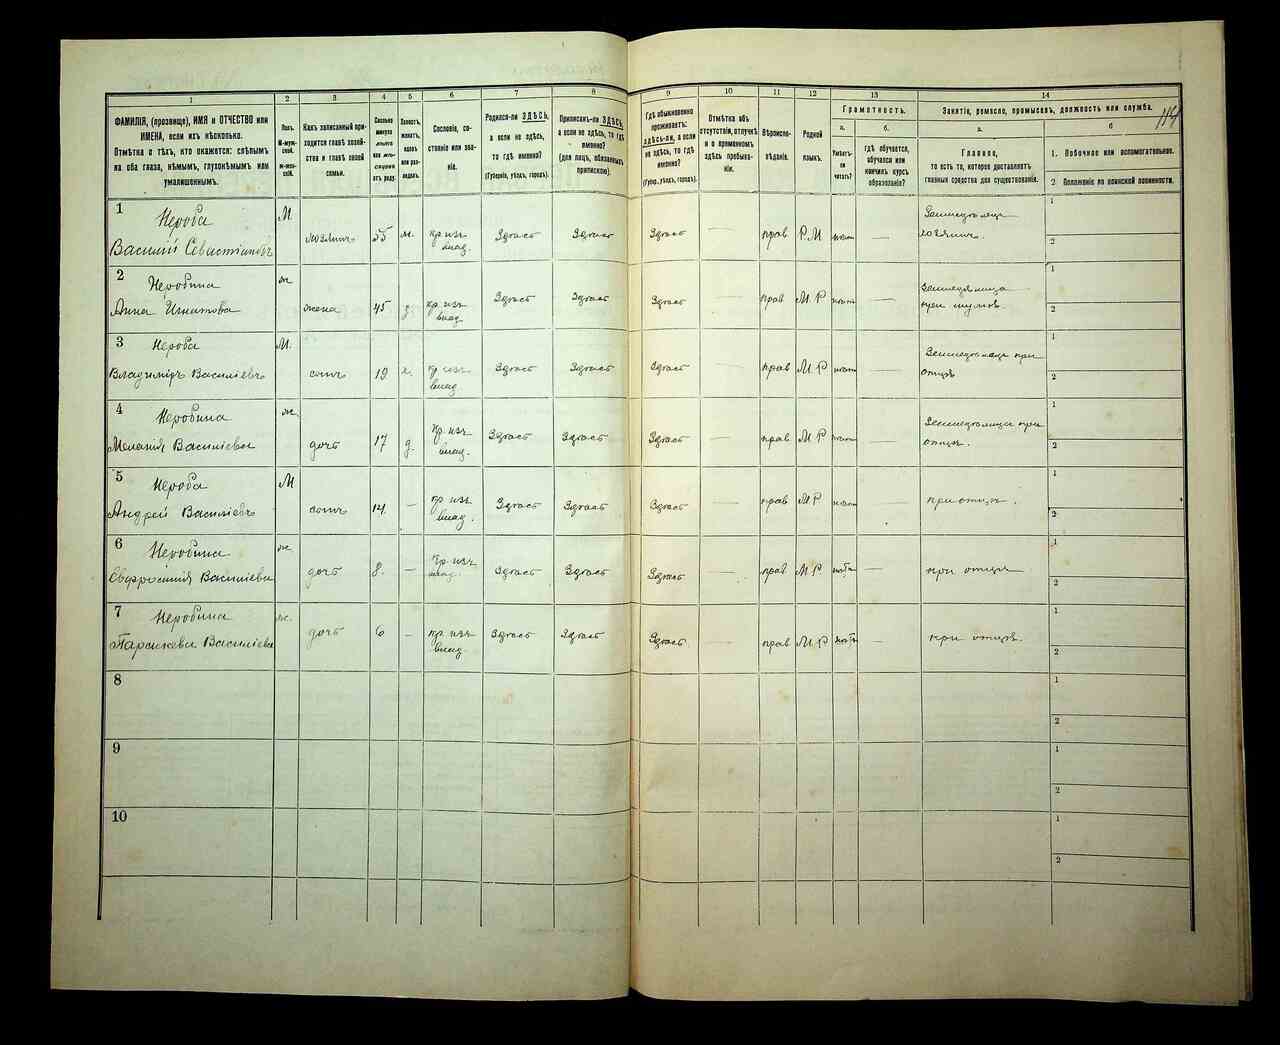 1 2 3 4 5 6 7 8 9 10 11 12 13 14
ФАМИЛІЯ, (прозвище), ИМЯ и ОТЧЕСТВО или
ИМЕНА, если ихъ нѣсколько.
Отмѣтка о тѣхъ, кто окажется: слѣпымъ
на оба глаза, нѣмымъ, глухонѣмымъ или
умалишеннымъ.
Полъ.
М-муж-
ской.
Ж-жен-
скій.
Какъ записанный при-
ходится главѣ хозяй-
ства и главѣ своей
семьи.
Сколько
минуло
лѣтъ
или мѣ-
сяцевъ
отъ роду.
Холостъ,
женатъ,
вдовъ
или раз-
веденъ.
Сословіе, со-
стояніе или зва-
ніе.
Родился-ли ЗДѢСЬ,
а если не здѣсь,
то гдѣ именно?
(Губернія, уѣздъ, городъ).
Приписанъ-ли ЗДѢСЬ,
а если не здѣсь, то гдѣ
именно?
(для лицъ, обязанныхъ
припискою).
Гдѣ обыкновенно
проживаетъ:
здѣсь-ли, а если
не здѣсь, то гдѣ
именно?
(Губер., уѣздъ, городъ).
Отмѣтка объ
отсутствіи, отлучкѣ
и о временномъ
здѣсь пребыва-
ніи.
Вѣроиспо-
вѣданіе.
Родной
языкъ.
Грамотность.
а.
Умѣетъ-
ли
читать?
б.
гдѣ обучается,
обучался или
кончилъ курсъ
образованія?
Занятіе, ремесло, промыселъ, должность или служба.
а.
Главное,
то есть то, которое доставляетъ
главныя средства для существованія.
б
1. Побочное или вспомогательное.
2 Положеніе по воинской повинности.
114
1 Нероба М
Василій Севастіановъ хозяинъ 55 ж. кр. изъ влад. Здѣсь Здѣсь Здѣсь — прав Р.М — Земледѣлецъ хозяинъ. 1 2
2 Неробина ж
Анна Игнатова жена 45 з кр. изъ влад Здѣсь Здѣсь Здѣсь — прав М.Р — Земледѣлица при мужѣ 1 2
3 Нероба М.
Владиміръ Василіевъ сынъ 19 х. кр изъ влад Здѣсь Здѣсь Здѣсь — прав М Р — Земледѣлецъ при отцѣ 1 2
4 Неробина ж
Меланія Василіева дочь 17 д. кр. изъ влад. Здѣсь Здѣсь Здѣсь — прав М Р — Земледѣлица при отцѣ. 1 2
5 Нероба М
Андрей Василіевъ сынъ 14. — кр изъ влад. Здѣсь Здѣсь Здѣсь — прав М Р — при отцѣ. 1 2
6 Неробина ж
Евфросинія Василіева дочь 8. — кр. изъ влад. Здѣсь Здѣсь Здѣсь — прав М Р — при отцѣ 1 2
7 Неробина ж.
Параскева Василіева дочь 6 — кр. изъ влад. Здѣсь Здѣсь Здѣсь — прав М Р — при отцѣ. 1 2
8 1 2
9 1 2
10 1 2